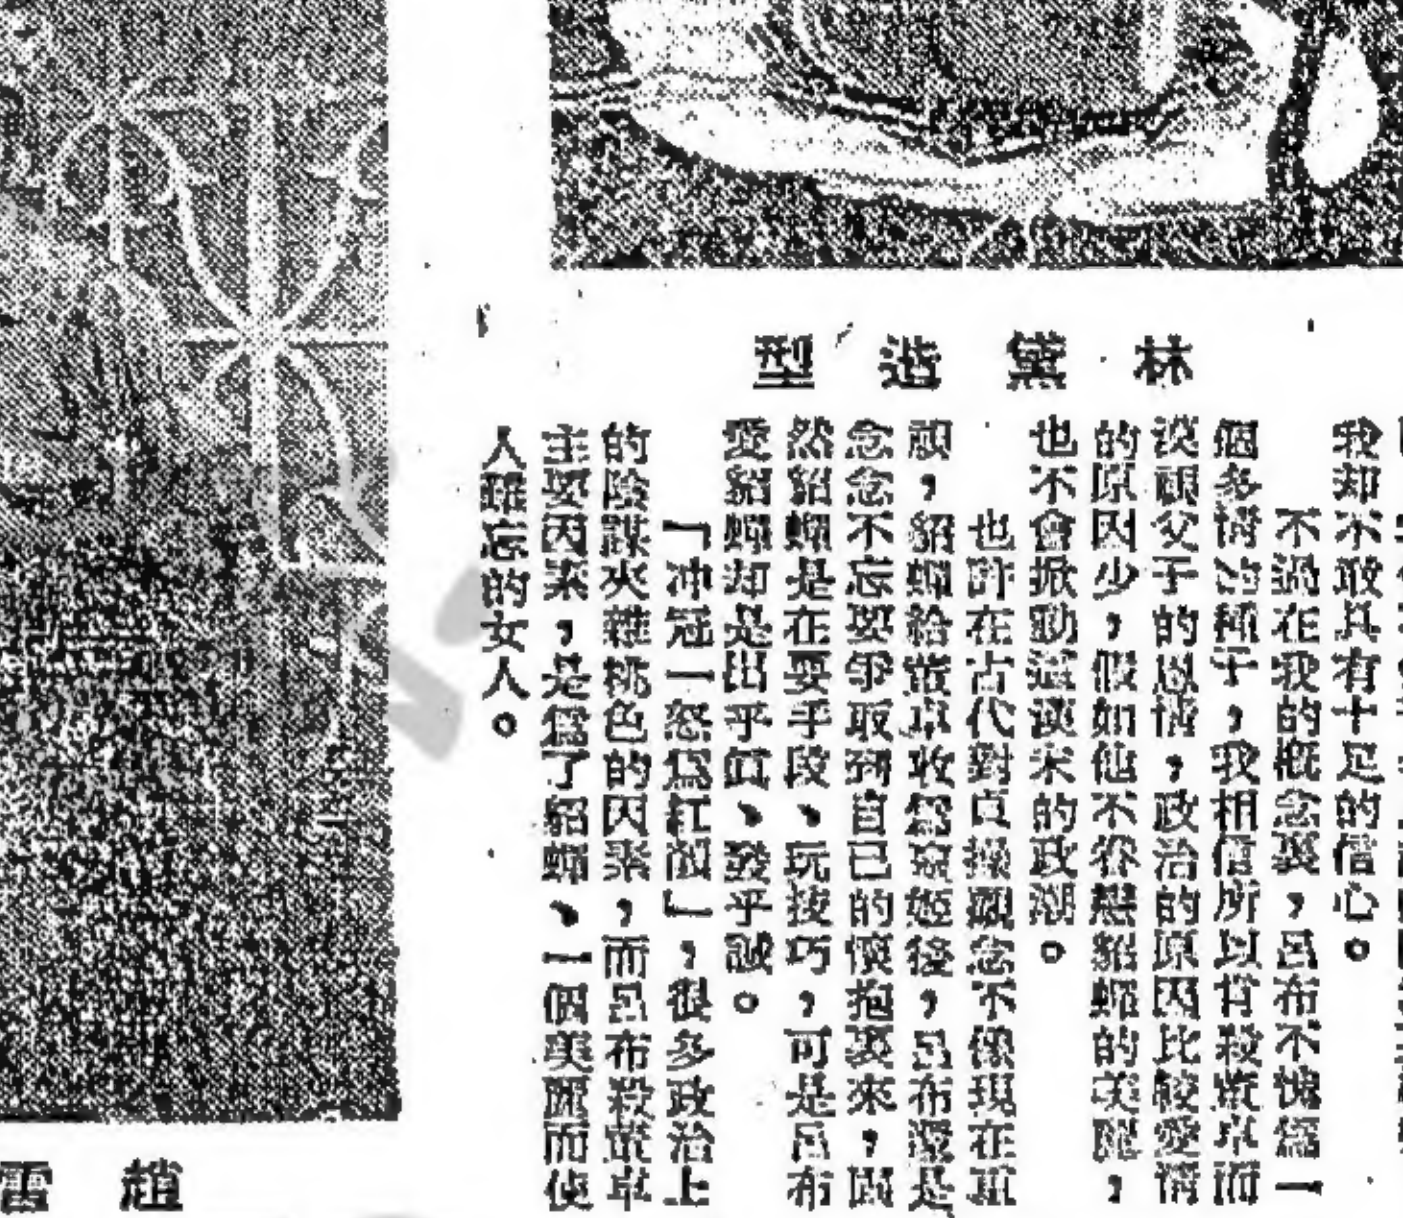 林黛造型
我却不敢具有十足的信心。
不過在我的概念裏，呂布不愧爲一
個多情的種子，我相信所以肯殺董卓而
淡視父子的恩情，政治的原因比較愛情
的原因少，假如他不眷戀貂蟬的美麗，
也不會掀動這漢末的政潮。
也許在古代對貞操觀念不像現在重
視，貂蟬給董卓收爲寵姬後，呂布還是
念念不忘要爭取到自己的懷抱裏來，固
然貂蟬是在耍手段、玩技巧，可是呂布
愛貂蟬却是出乎眞、發乎誠。
『冲冠一怒爲紅顔』，很多政治上
的陰謀夾雜桃色的因素，而呂布殺董卓
主要因素，是爲了貂蟬、一個美麗而使
人難忘的女人。
趙雷